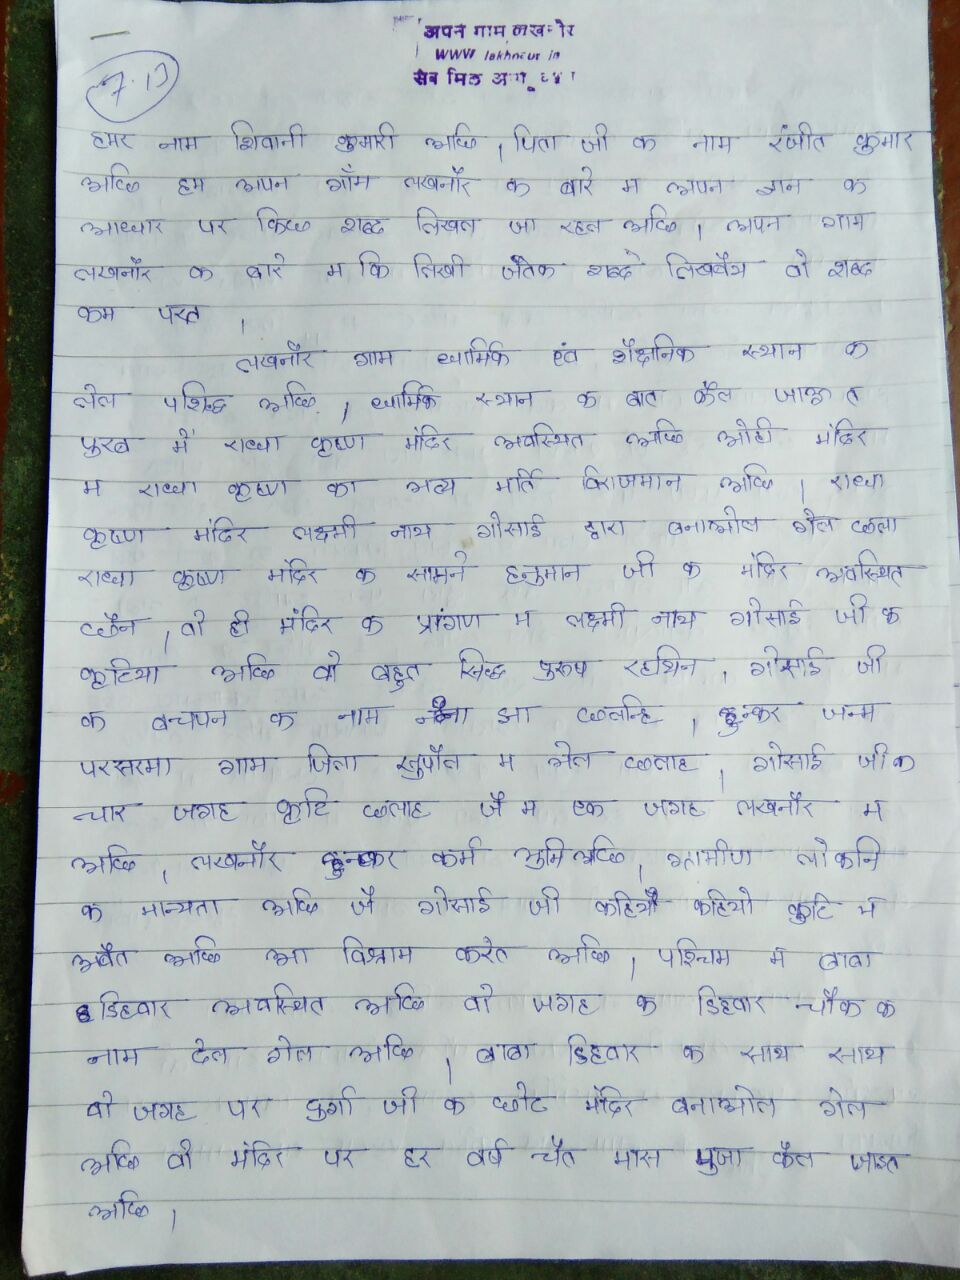 अपन गाम लखनौर
WWW lakhnaur in
7.17
हमर नाम शिवानी कुमारी अछि, पिता जी क नाम रंजीत कुमार
अछि हम अपन गाँम लखनौर क बारे म अपन ज्ञान क
आधार पर किछ शब्द लिखल जा रहल अछि, अपन गाम
लखनौर क बारे म कि लिखी जतेक शब्दे लिखबैय वो शब्द
कम परत ,
लखनौर गाम धार्मिक एंव शैक्षनिक स्थान क
लेल पशिद्ध अछि, धार्मिक स्थान क बात कैल जाऊ त
पुरब में राधा कृष्ण मंदिर अवस्थित अछि ओही मंदिर
म राधा कृष्ण का भव्य मर्ति विराजमान अछि, राधा
कृष्ण मंदिर लक्ष्मी नाथ गोसाई द्वारा बनाओल गेल छला
राधा कृष्ण मंदिर क सामने हनुमान जी क मंदिर अवस्थित
छैन, वो ही मंदिर क प्रांगण म लक्ष्मी नाथ गोसाई जी क
कुटिया अछि वो बहुत सिद्ध पुरूष रहथिन, गोसाई जी
क बचपन क नाम झा छलन्हि, हुन्कर जन्म
परसरमा गाम जिला सुपौल म भेल छलाह, गोसाई जी क
चार जगह कुटि छलाह जै म एक जगह लखनौर म
अछि, लखनौर हुन्कर कर्म भुमि अछि, ग्रामीण लोकनि
क मान्यता अछि जे गोसाई जी कहियौ कहियो कुटि में
अबैत अछि आ विश्राम करेत अछि, पश्चिम में बाबा
डिहवार अवस्थित अछि वो जगह क डिहवार चौक क
नाम देल गेल अछि, बाबा डिहवार क साथ साथ
वो जगह पर दुर्गा जी क छोट मंदिर बनाओल गेल
अछि वो मंदिर पर हर वर्ष चैत मास पुजा कैल जाइत
अछि,